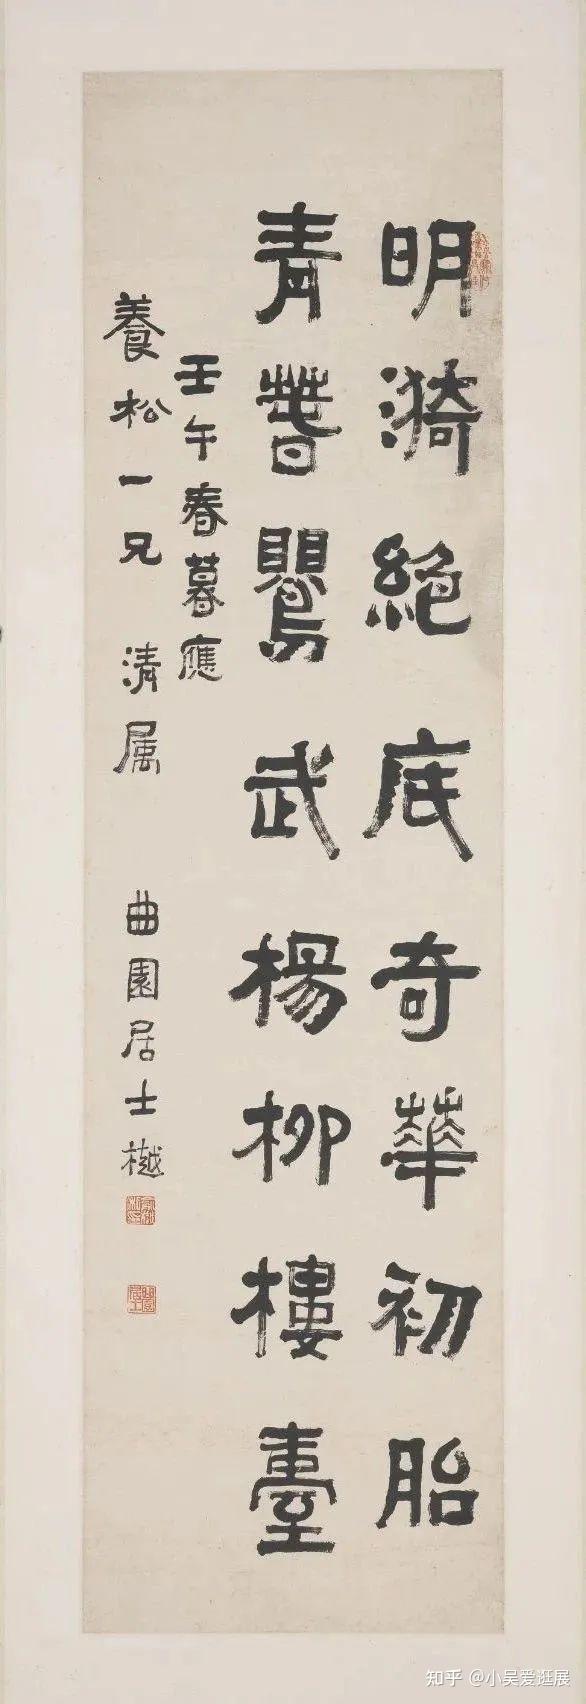 明漪絕底奇華初胎
青萅鸚武楊柳樓臺
壬午春暮應
養松一兄 清属 曲園居士樾
知乎 @小吴爱逛展